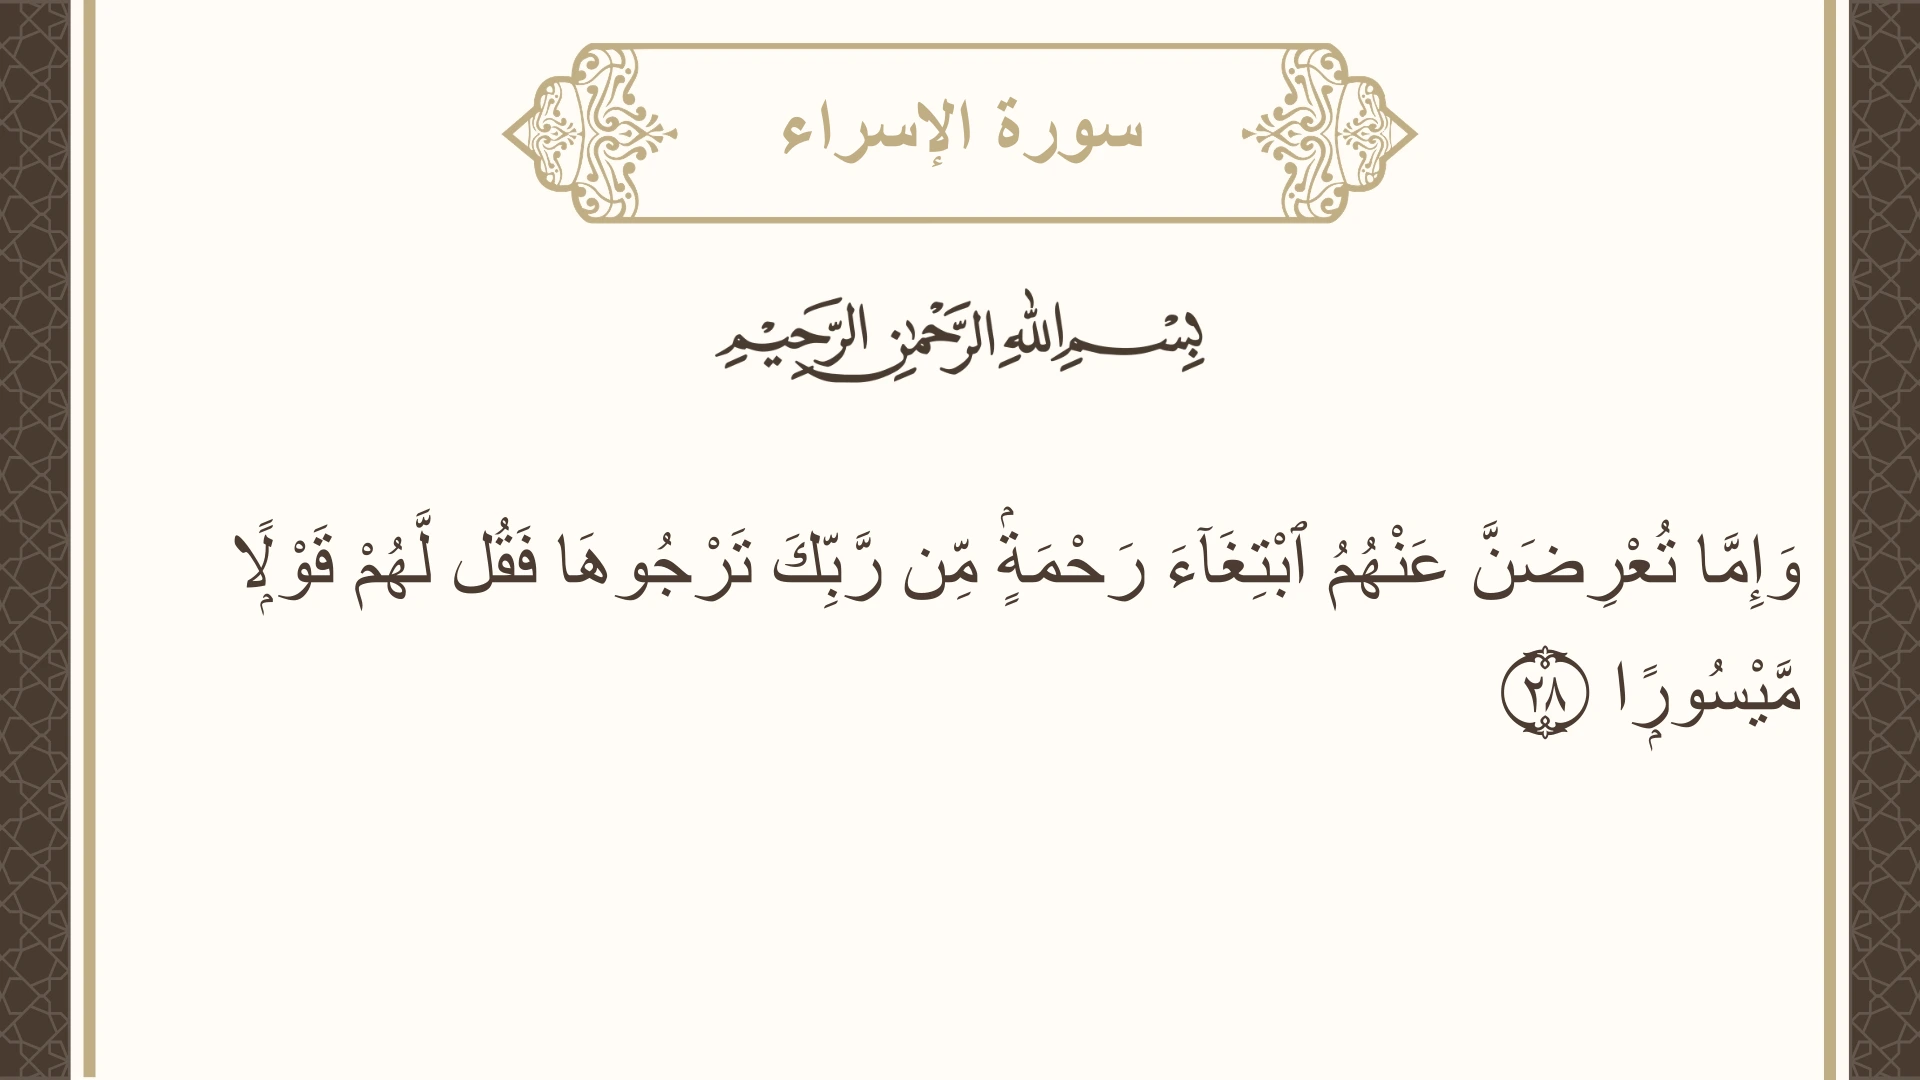 سورة الإسراء
بِسْمِ اللهِ الرَّحْمٰنِ الرَّحِيْمِ
وَإِمَّا تُعْرِضَنَّ عَنْهُمُ ٱبْتِغَآءَ رَحْمَةٍۢ مِّن رَّبِّكَ تَرْجُوهَا فَقُل لَّهُمْ قَوْلًۭا
مَّيْسُورًۭا ٢٨